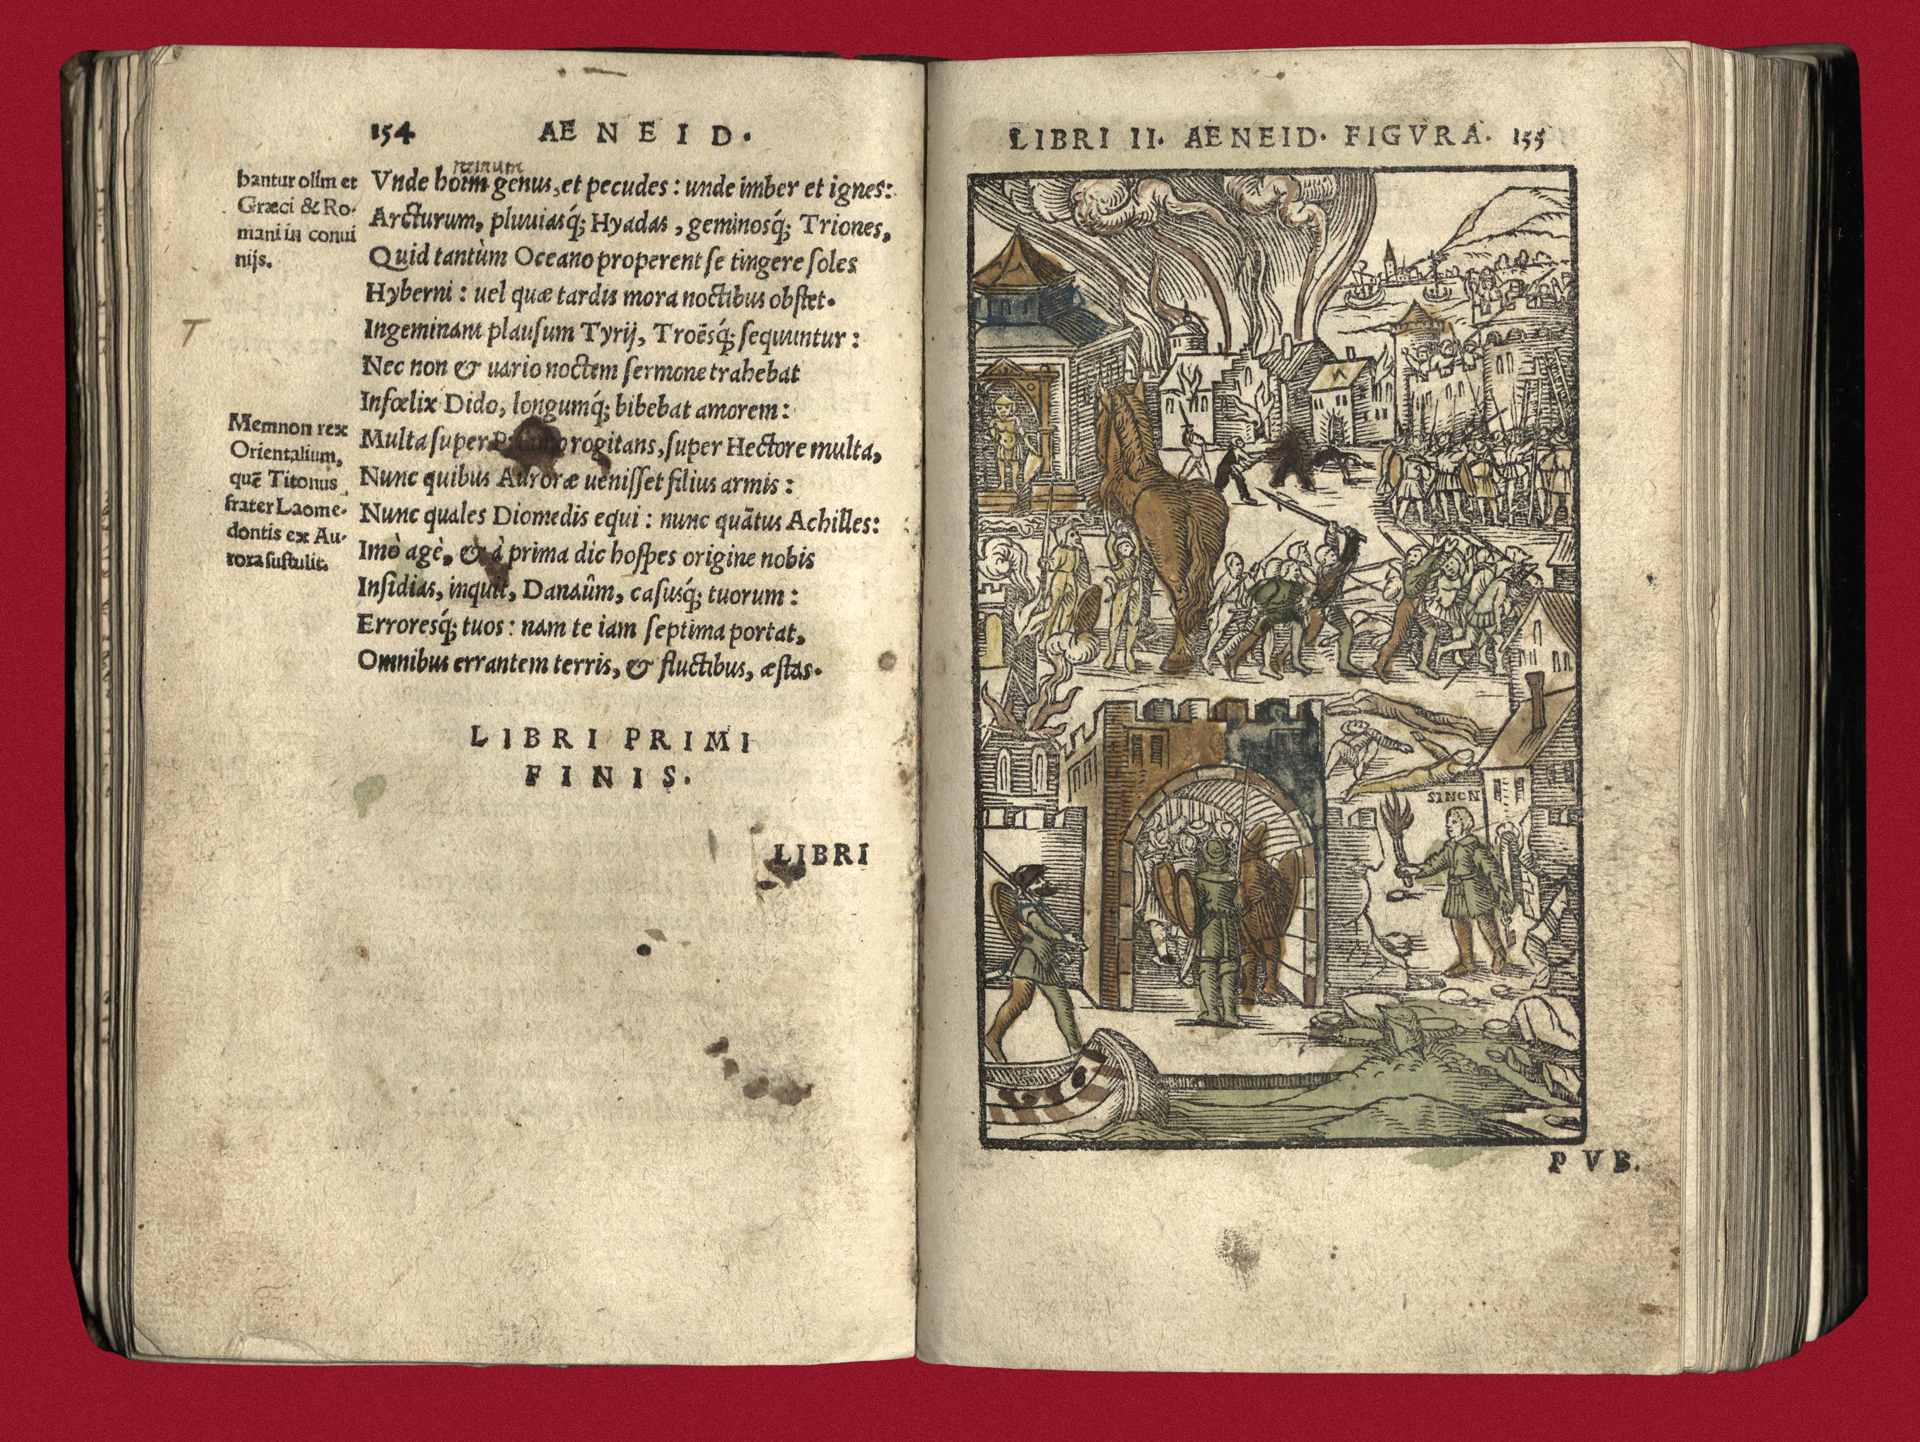 154 AENEID.
bantur olim et
Græci & Ro-
mani in conui
nijs.
minum
Vnde hoim genus, et pecudes: unde imber et ignes:
Arcturum, pluuiasq́; Hyadas, geminosq́; Triones,
Quid tantùm Oceano properent se tingere soles
Hyberni: uel quæ tardis mora noctibus obstet.
Ingeminant plausum Tyrij, Troësq́; sequuntur:
Nec non & uario noctem sermone trahebat
Infœlix Dido, longumq́; bibebat amorem:
Multa super rogitans, super Hectore multa,
Nunc quibus Auroræ uenisset filius armis:
Nunc quales Diomedis equi: nunc quãtus Achilles:
Imò agè, & à prima dic hospes origine nobis
Insidias, inquit, Danaûm, casusq́; tuorum:
Erroresq́; tuos: nam te iam septima portat,
Omnibus errantem terris, & fluctibus, æstas.
T
Memnon rex
Orientalium,
quẽ Titonus
frater Laome-
dontis ex Au-
rora sustulit.
LIBRI PRIMI
FINIS.
LIBRI
LIBRI II. AENEID. FIGVRA. 155
SINON
PVB.